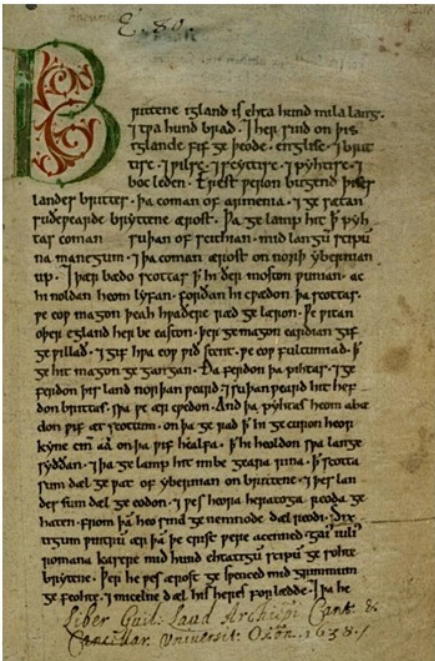 E. 80.
Brittene igland is ehta hund mila lang.
⁊ twa hund brad. ⁊ her sind on þis
iglande fif ge þeode. englisc. ⁊ brit
tisc. ⁊ wilsc. ⁊ scyttisc. ⁊ pyhtisc. ⁊
boc leden. Erest weron bugend þises
landes brittes. þa coman of armenia. ⁊ ge sætan
suðewearde bryttene ærost. Þa ge lamp hit þ̄ pyh
tas coman suþan of scithian. mid langū scipū
na manegum. ⁊ þa coman ærost on norþ ybernian
up. ⁊ þær bædo scottas þ̄ hi ðer moston wunian. ac
hi noldan heom lyfan. forðan hi cwædon þa scottas.
we eow magon þeah hwaðere ræd ge læron. We witan
oþer egland her be easton. þer ge magon eardian gif
ge willað. ⁊ gif hwa eow wið stent. we eow fultumiað. þ̄
ge hit magon ge gangan. Ða ferdon þa pihtas. ⁊ ge
ferdon þis land norþan weard. ⁊ suþan weard hit hef
don brittas. swa we ær cwedon. And þa pyhtas heom abæ
don wif æt scottum. on þa ge rad þ̄ hi ge curon heor
kyne cīn aa on þa wif healfa. þ̄ hi heoldon swa lange
syððan. ⁊ þa ge lamp hit imbe geara rina. þ̄ scotta
sum dæl ge wat of ybernian on brittene. ⁊ þes lan
des sum dæl ge eodon. ⁊ wes heora heratoga reoda ge
haten. from þā heo sind ge nemnode dæl reodi. Six
tigum wintrū ær þā þe crist were acenned. gaī iuliꝰ
romana kasere mid hund ehtatigū scipū ge sohte
brytene. Þer he wes ærost ge swenced mid grimmum
ge feohte. ⁊ micelne dæl his heres forlædde. ⁊ þa he
Liber Guil: Laud Archiepi Cant. &
Cancellar. Universit: Oxon. 1638.